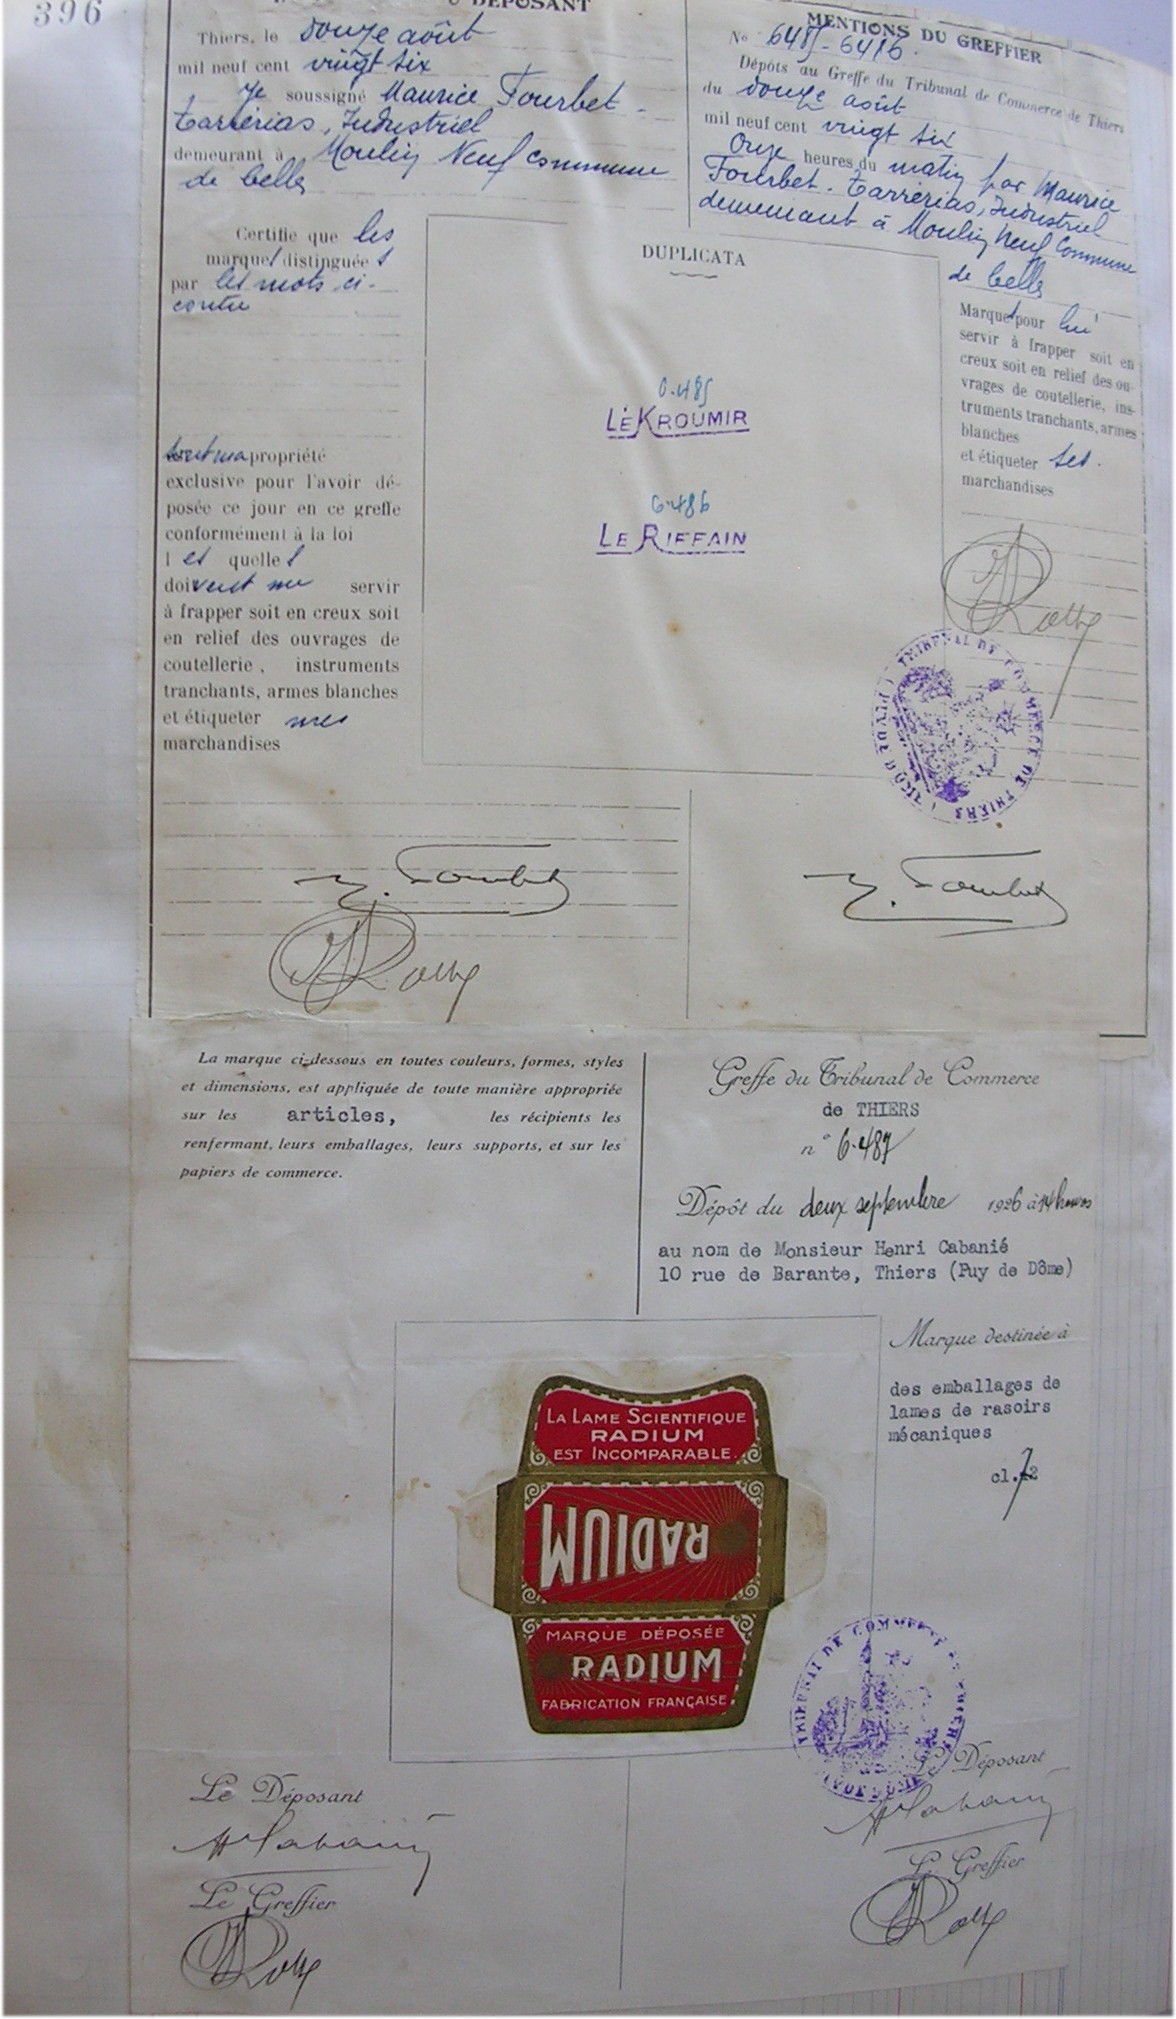 396
DÉPOSANT
Thiers, le douze août
mil neuf cent vingt six
Je soussigné Maurice Fourbet-
Tarrérias, Industriel
demeurant à Moulin Neuf commune
de Celles
Certifie que les
marques distinguées
par les mots ci-
contre
sont ma propriété
exclusive pour l'avoir dé-
posée ce jour en ce greffe
conformément à la loi
l es quelles
doivent me servir
à frapper soit en creux soit
en relief des ouvrages de
coutellerie, instruments
tranchants, armes blanches
et étiqueter mes
marchandises
MENTIONS DU GREFFIER
No 6485-6416.
Dépôts au Greffe du Tribunal de Commerce de Thiers
du douze août
mil neuf cent vingt six
Onze heures du matin par Maurice
Fourbet-Tarrérias, Industriel
demeurant à Moulin Neuf Commune
de Celles
Marques pour lui
servir à frapper soit en
creux soit en relief des ou-
vrages de coutellerie, ins-
truments tranchants, armes
blanches
et étiqueter ses
marchandises
DUPLICATA
6.485
LE KROUMIR
6.486
LE RIFFAIN
TRIBUNAL DE COMMERCE DE THIERS (PUY DE DOME)
La marque ci-dessous en toutes couleurs, formes, styles
et dimensions, est appliquée de toute manière appropriée
sur les articles, les récipients les
renfermant, leurs emballages, leurs supports, et sur les
papiers de commerce.
Greffe du Tribunal de Commerce
de THIERS
n° 6.487
Dépôt du deux septembre 1926 à 14 heures
au nom de Monsieur Henri Cabanié
10 rue de Barante, Thiers (Puy de Dôme)
Marque destinée à
des emballages de
lames de rasoirs
mécaniques
cl.
LA LAME SCIENTIFIQUE
RADIUM
EST INCOMPARABLE.
RADIUM
MARQUE DÉPOSÉE
RADIUM
FABRICATION FRANÇAISE
TRIBUNAL DE COMMERCE DE THIERS
Le Déposant
H Cabanié
Le Greffier
Le Déposant
H Cabanié
Le Greffier